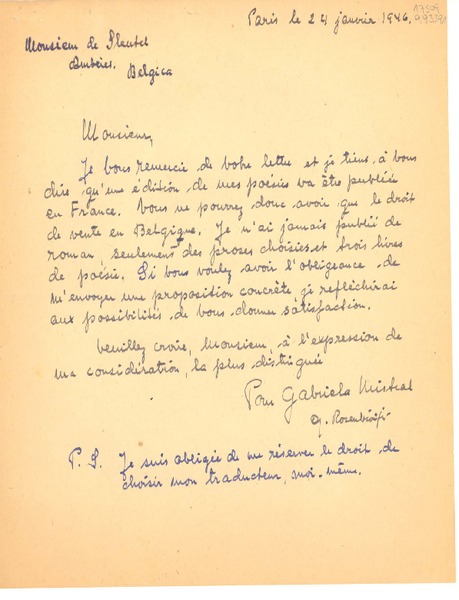 Paris le 24 janvier 1946.
Monsieur de
Belgica
Monsieur,
Je vous remercie de votre lettre et je tiens, à vous
dire qu'une édition de mes poésies va être publiée
en France. Vous ne pourrez donc avoir que le droit
de vente en Belgique. Je n'ai jamais publié de
roman, seulement des proses choisies et trois livres
de poésie. Si vous voulez avoir l'obligeance de
m'envoyer une proposition concrète, je réfléchirai
aux possibilités de vous donner satisfaction.
Veuillez croire, Monsieur, à l'expression de
ma considération, la plus distinguée
Pour Gabriela Mistral
P. S. Je suis obligée de me réserver le droit de
choisir mon traducteur, moi-même.